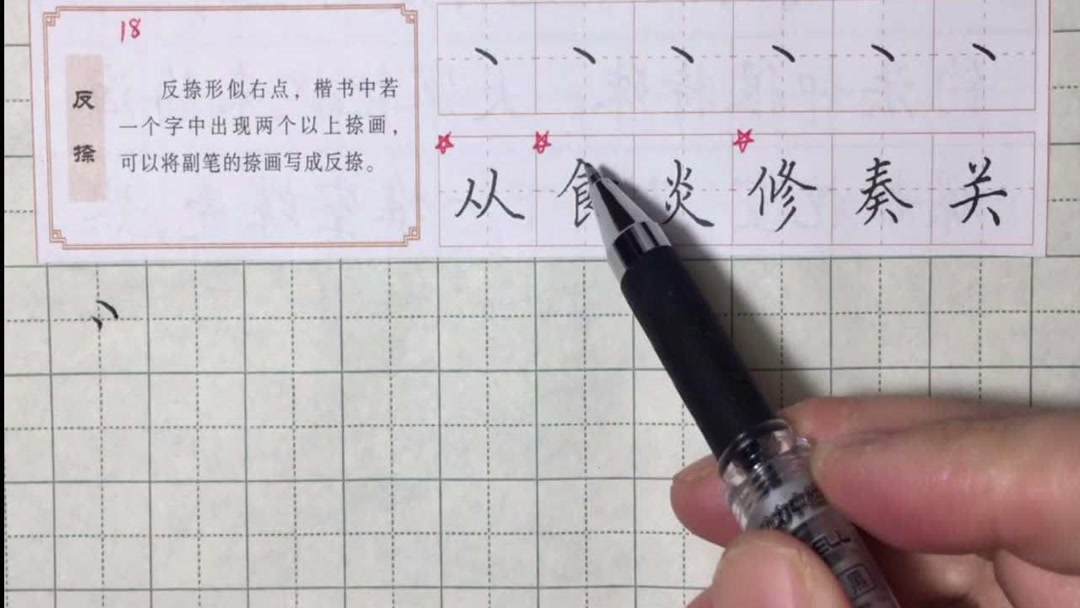 18
反捺
反捺形似右点，楷书中若
一个字中出现两个以上捺画，
可以将副笔的捺画写成反捺。
从 炎 修 奏 关